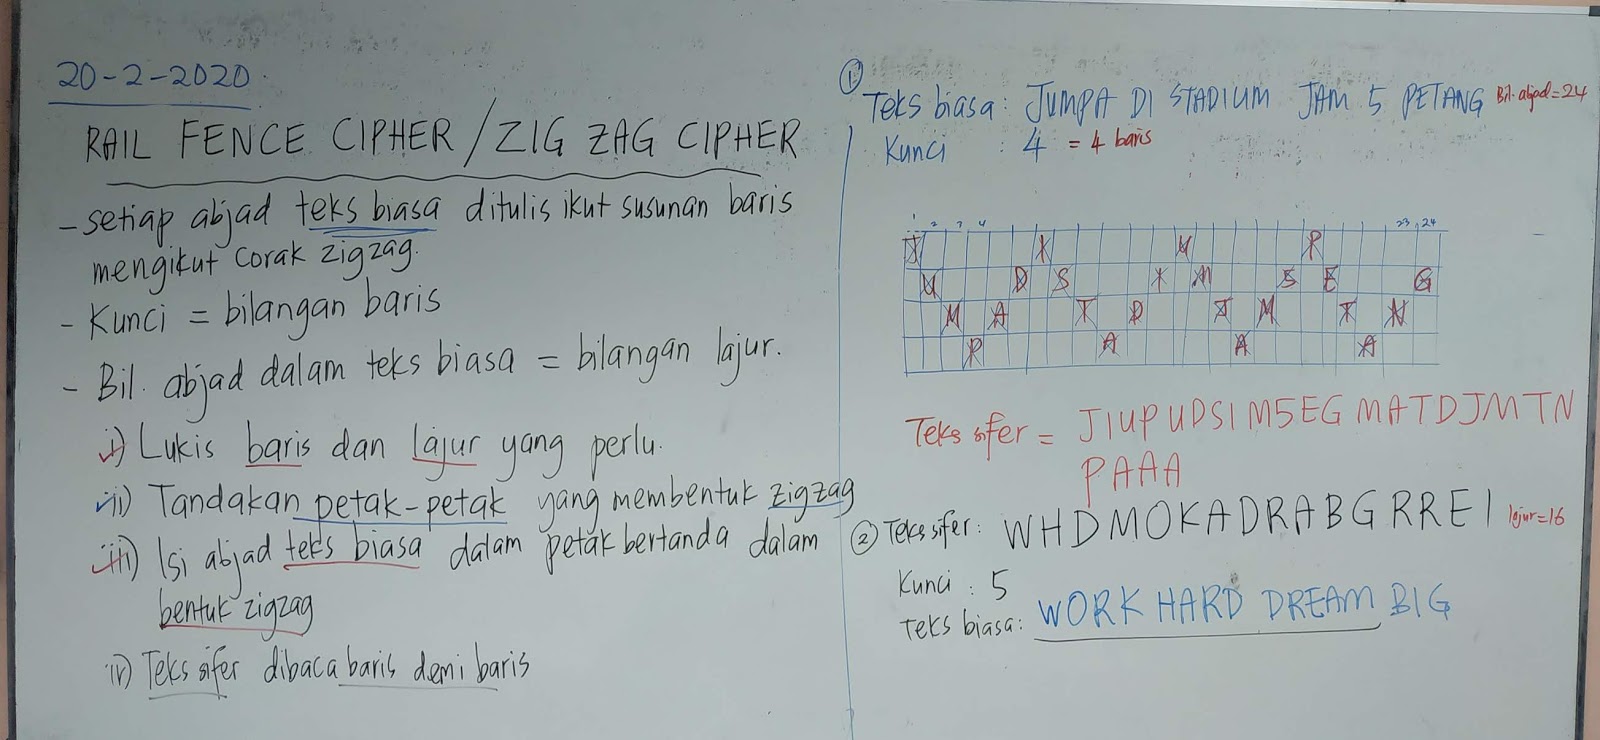 20-2-2020
RAIL FENCE CIPHER / ZIG ZAG CIPHER
- setiap abjad teks biasa ditulis ikut susunan baris
mengikut corak zigzag.
- Kunci = bilangan baris
- Bil. abjad dalam teks biasa = bilangan lajur.
i) Lukis baris dan lajur yang perlu.
ii) Tandakan petak-petak yang membentuk zigzag
iii) Isi abjad teks biasa dalam petak bertanda dalam
bentuk zigzag
iv) Teks sifer dibaca baris demi baris
① Teks biasa: JUMPA DI STADIUM JAM 5 PETANG Bil. abjad = 24
Kunci : 4 = 4 baris
1 2 3 4 23 24
J I U P
U D S I M 5 E G
M A T D J M T N
P A A A
Teks sifer = JIUPUDSIM5EGMATDJMTN
PAAA
② Teks sifer: WHDMOKADRABGRREI lajur=16
Kunci : 5
Teks biasa: WORK HARD DREAM BIG